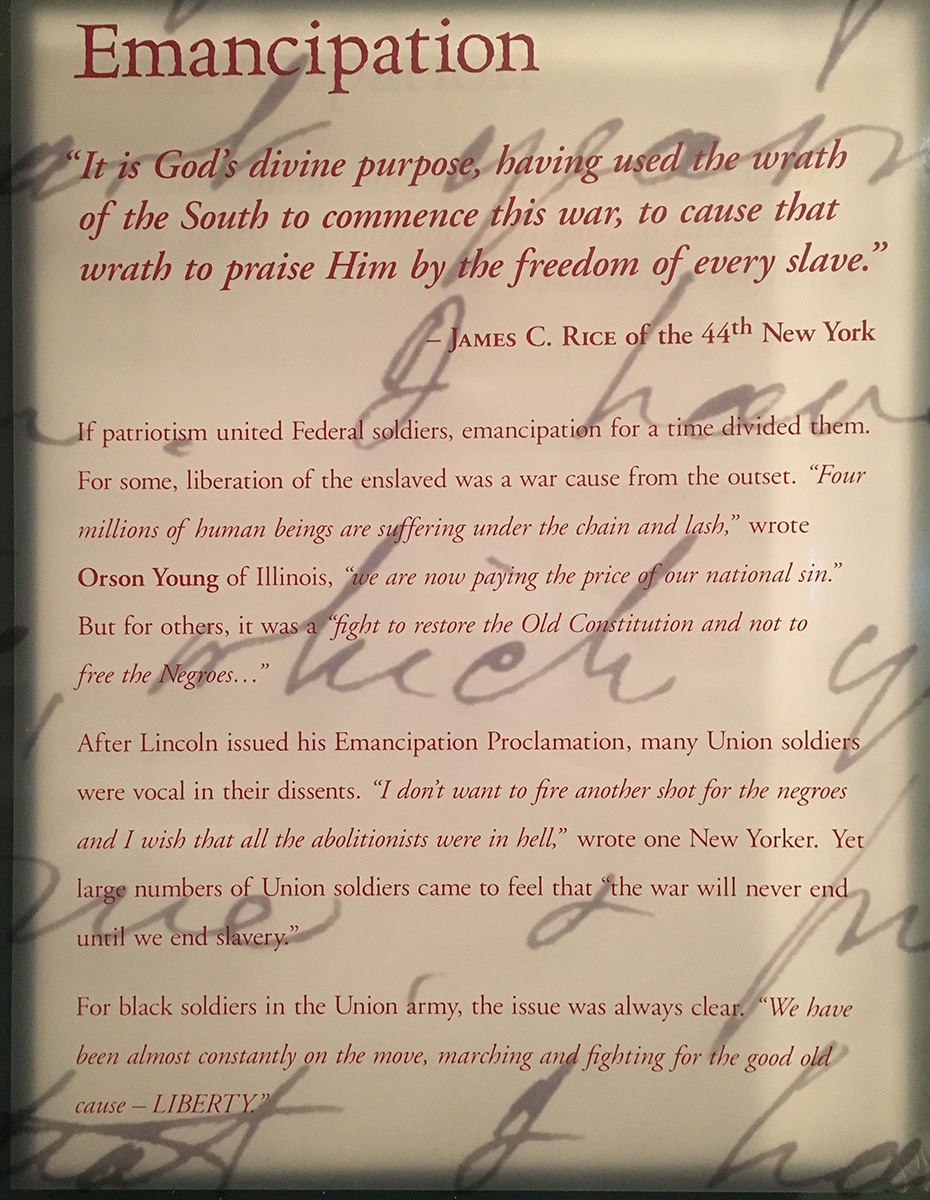 Emancipation
“It is God’s divine purpose, having used the wrath
of the South to commence this war, to cause that
wrath to praise Him by the freedom of every slave.”
– James C. Rice of the 44th New York
If patriotism united Federal soldiers, emancipation for a time divided them.
For some, liberation of the enslaved was a war cause from the outset. “Four
millions of human beings are suffering under the chain and lash,” wrote
Orson Young of Illinois, “we are now paying the price of our national sin.”
But for others, it was a “fight to restore the Old Constitution and not to
free the Negroes…”
After Lincoln issued his Emancipation Proclamation, many Union soldiers
were vocal in their dissents. “I don’t want to fire another shot for the negroes
and I wish that all the abolitionists were in hell,” wrote one New Yorker. Yet
large numbers of Union soldiers came to feel that “the war will never end
until we end slavery.”
For black soldiers in the Union army, the issue was always clear. “We have
been almost constantly on the move, marching and fighting for the good old
cause – LIBERTY.”
I have
which
I